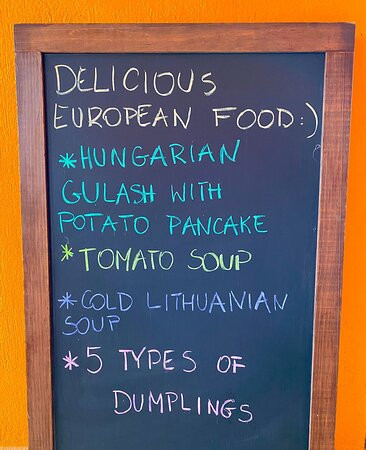 DELICIOUS
EUROPEAN FOOD:)
*HUNGARIAN
GULASH WITH
POTATO PANCAKE
*TOMATO SOUP
*COLD LITHUANIAN
SOUP
*5 TYPES OF
DUMPLINGS